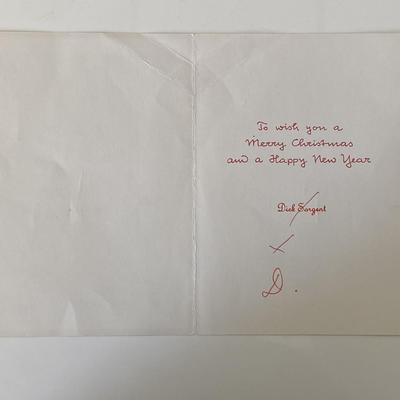 To wish you a
Merry Christmas
and a Happy New Year
Dick Sargent
x
D.